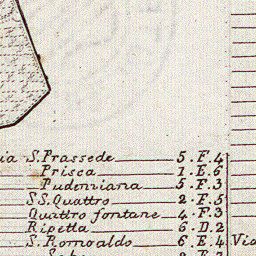 ia S. Prassede 5. F. 4
Prisca 1. E. 6
Pudenziana 5. F. 3
SS. Quattro 2. F. 5
Quattro fontane 4. F. 3
Ripetta 6. D. 2
S. Romoaldo 6. E. 4 Via